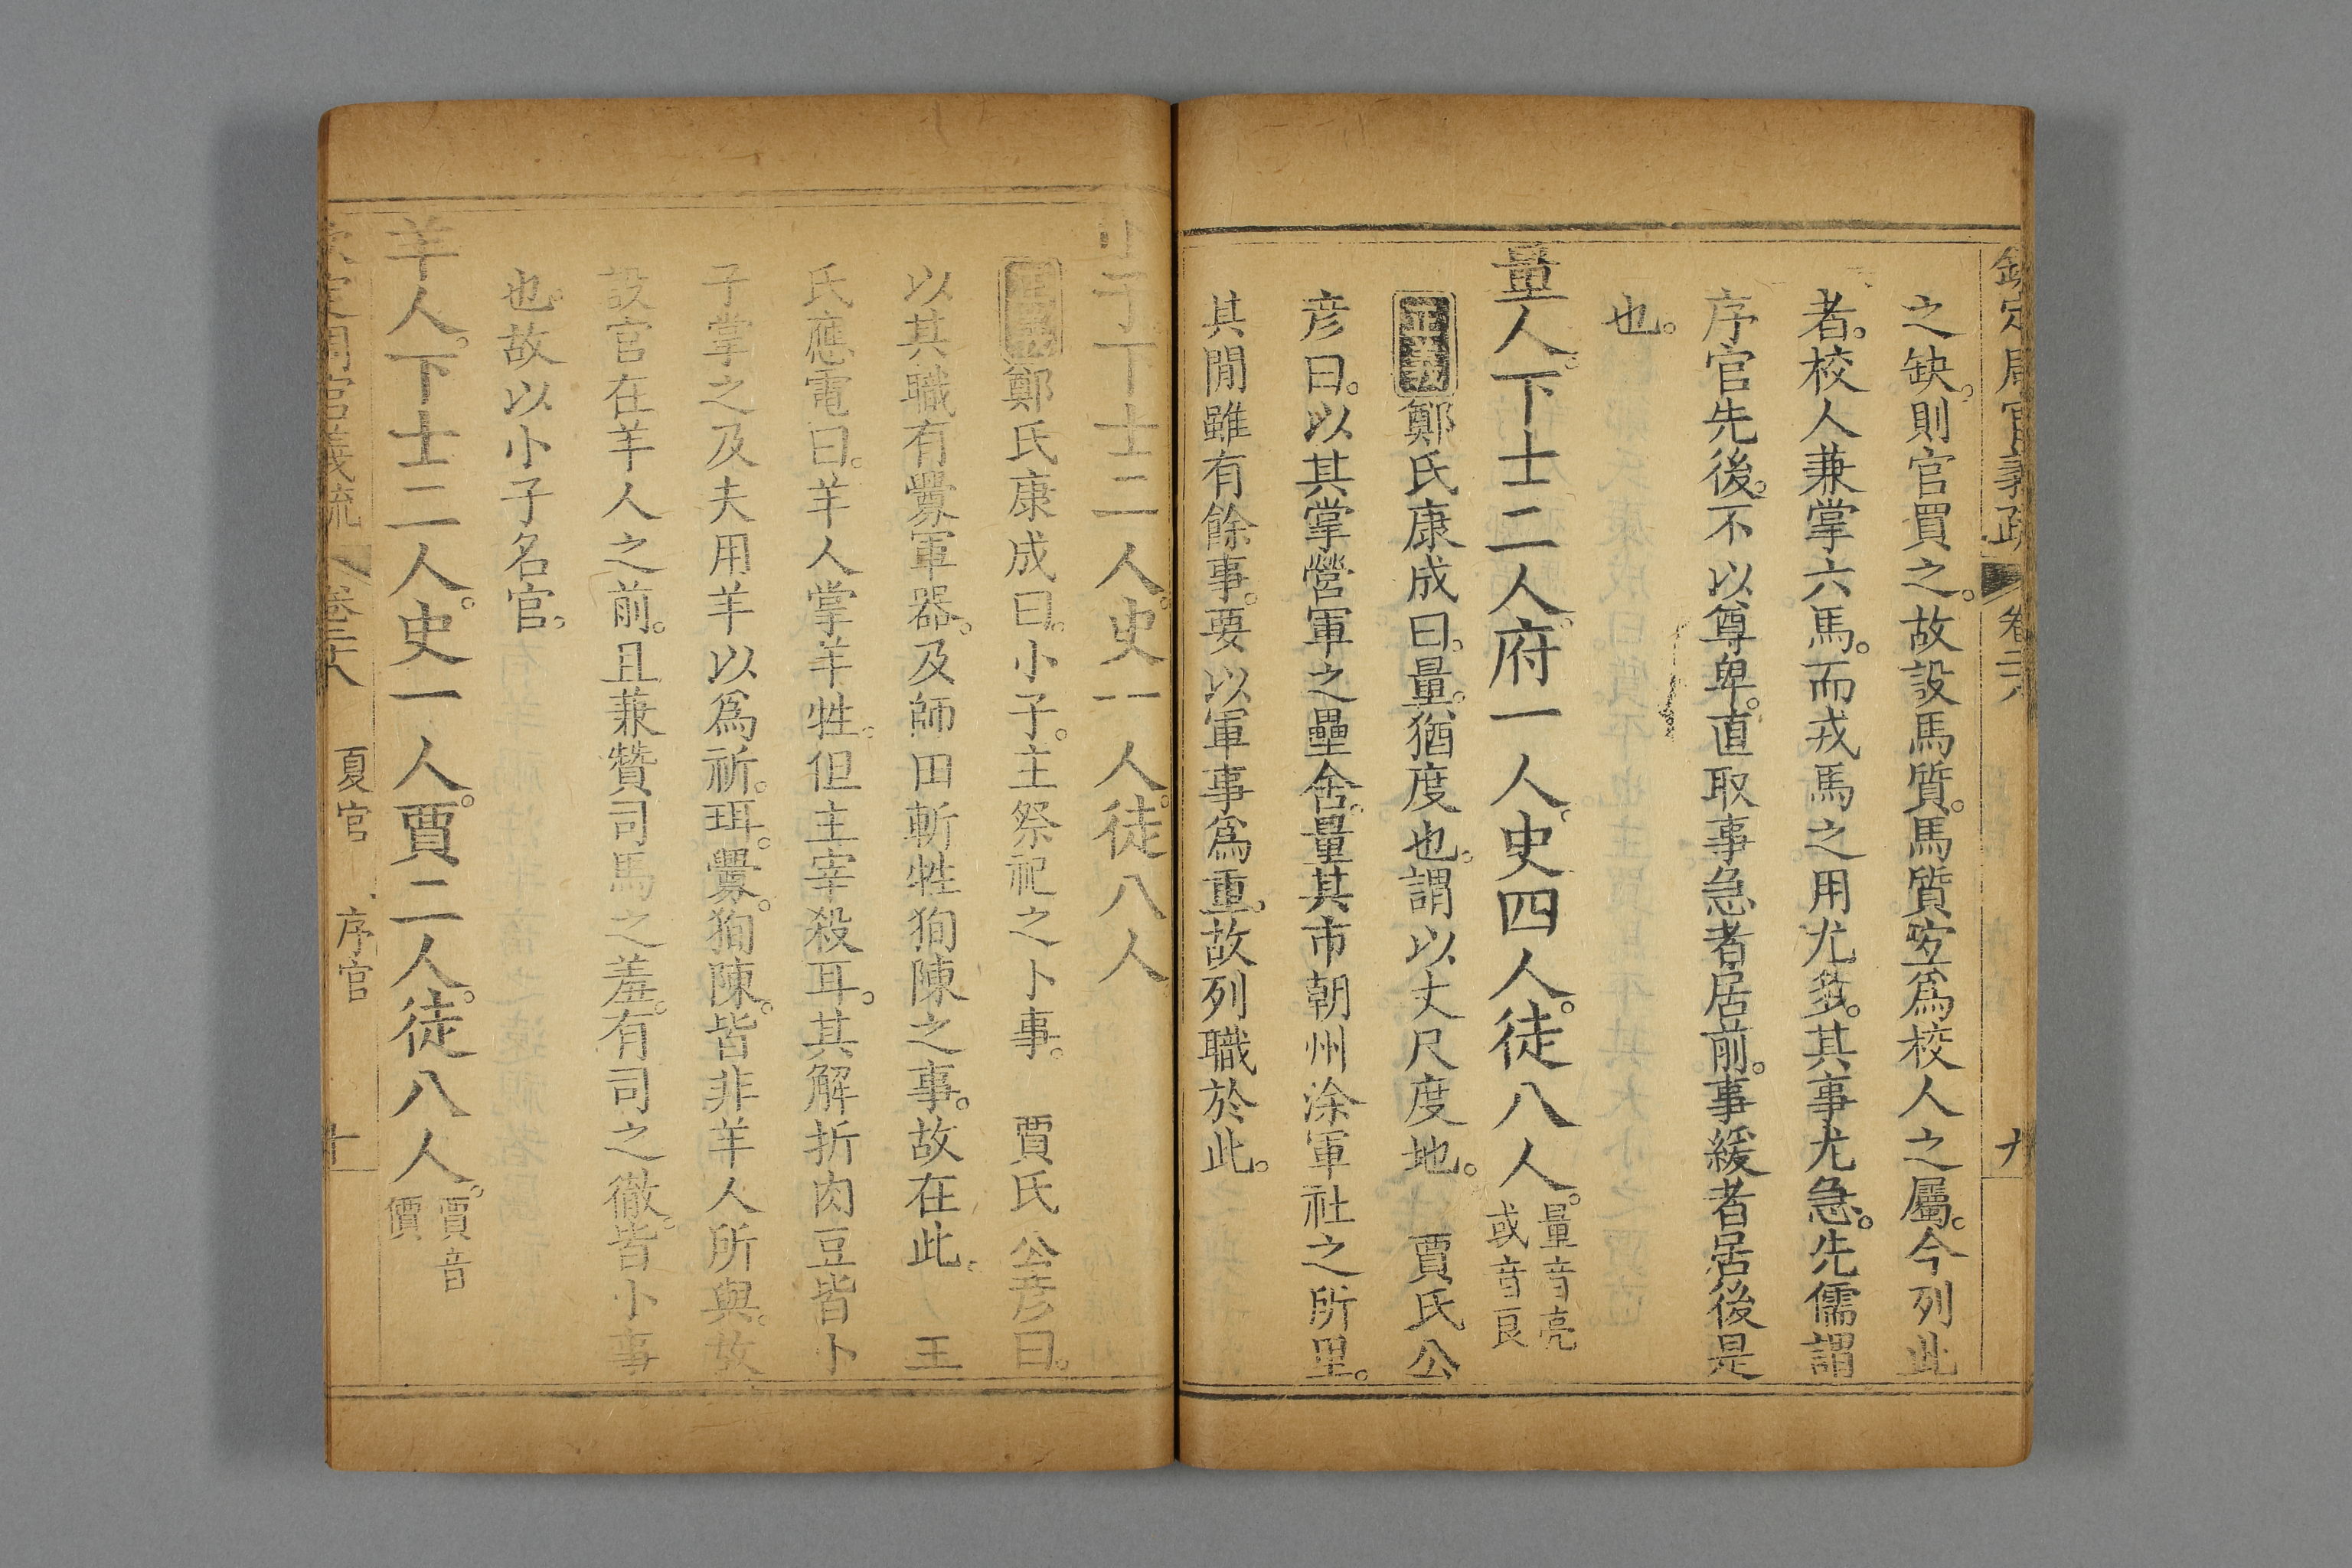 欽定周官義疏 卷二十八 九
之缺。則官買之。故設馬質。馬質宜爲校人之屬。今列此
者。校人兼掌六馬。而戎馬之用尤多。其事尤急。先儒謂
序官先後。不以尊卑。直取事急者居前。事緩者居後是
也。
量人。下士二人。府一人。史四人。徒八人。量音亮
或音良
正義鄭氏康成曰。量。猶度也。謂以丈尺度地。 賈氏公
彥曰。以其掌營軍之壘舍。量其市朝州涂軍社之所里。
其閒雖有餘事。要以軍事爲重。故列職於此。
小子下士二人。史一人。徒八人
正義鄭氏康成曰。小子。主祭祀之小事。 賈氏公彥曰。
以其職有釁軍器。及師田斬牲狥陳之事。故在此。 王
氏應電曰。羊人掌羊牲。但主宰殺耳。其解折肉豆皆小
子掌之及夫用羊以爲祈。珥。釁。狥陳。皆非羊人所與。故
設官在羊人之前。且兼贊司馬之羞。有司之徹。皆小事
也。故以小子名官。
羊人。下士二人。史一人。賈二人。徒八人。賈音
價
欽定周官義疏 卷二十八 夏官 序官 十